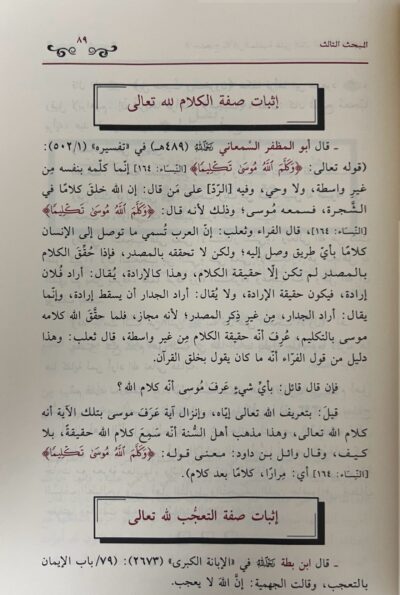 المبحث الثالث
٨٩
إثبات صفة الكلام لله تعالى
ـ قال أبو المظفر السَّمعاني رَحِمَهُ اللهُ (٤٨٩هـ) في «تفسيره» (٥٠٢/١):
(قوله تعالى: ﴿وَكَلَّمَ اللَّهُ مُوسَىٰ تَكْلِيمًا﴾ [النِّسَاء: ١٦٤] إنَّما كلّمه بنفسه مِن
غيرِ واسطة، ولا وحي، وفيه [الرّدّ] على مَن قال: إن الله خلقَ كلامًا في
الشَّجرة، فسمعه مُوسى؛ وذلك لأنه قال: ﴿وَكَلَّمَ اللَّهُ مُوسَىٰ تَكْلِيمًا﴾
[النِّسَاء: ١٦٤]، قال الفراء وثعلب: إنَّ العرب تُسمي ما توصل إلى الإنسان
كلامًا بأيِّ طريق وصل إليه؛ ولكن لا تحققه بالمصدر، فإذا حُقِّقَ الكلام
بالمصدر لم تكن إلَّا حقيقة الكلام، وهذا كالإرادة، يُقال: أراد فُلان
إرادة، فيكون حقيقة الإرادة، ولا يُقال: أراد الجدار أن يسقط إرادة، وإنَّما
يقال: أراد الجدار، مِن غيرِ ذِكرِ المصدر؛ لأنه مجاز، فلما حقَّقَ الله كلامه
موسى بالتكليم، عُرِفَ أنَّه حقيقة الكلام مِن غير واسطة، قال ثعلب: وهذا
دليل من قول الفرّاء أنَّه ما كان يقول بخلق القرآن.
فإن قال قائل: بأيِّ شيءٍ عَرفَ مُوسى أنَّه كلام الله ؟
قيلَ: بتعريف الله تعالى إيَّاه، وإنزال آية عَرَفَ موسى بتلك الآية أنه
كلام الله تعالى، وهذا مذهب أهل السُّنة أنَّه سَمِعَ كلامَ الله حقيقةً، بلا
كيف، وقال وائل بن داود: معنى قوله: ﴿وَكَلَّمَ اللَّهُ مُوسَىٰ تَكْلِيمًا﴾
[النِّسَاء: ١٦٤] أي: مِرارًا، كلامًا بعد كلام).
إثبات صفة التعجُّب لله تعالى
ـ قال ابن بطة رَحِمَهُ اللهُ في «الإبانة الكبرى» (٢٦٧٣): (٧٩/باب الإيمان
بالتعجب، وقالت الجهمية: إنَّ اللهَ لا يعجب.